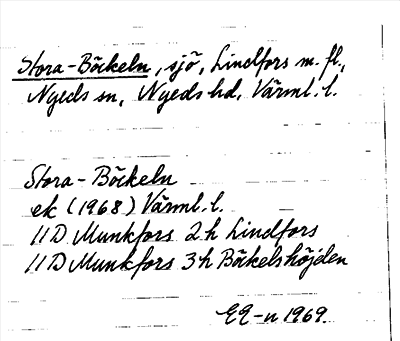 Stora-Böckeln, sjö, Lindfors m. fl.,
Nyeds sn, Nyeds hd, Värml. l.
Stora-Böckeln
ek (1968) Värml. l.
11D Munkfors 2h Lindfors
11D Munkfors 3h Böckelshöjden
EE-n 1969.